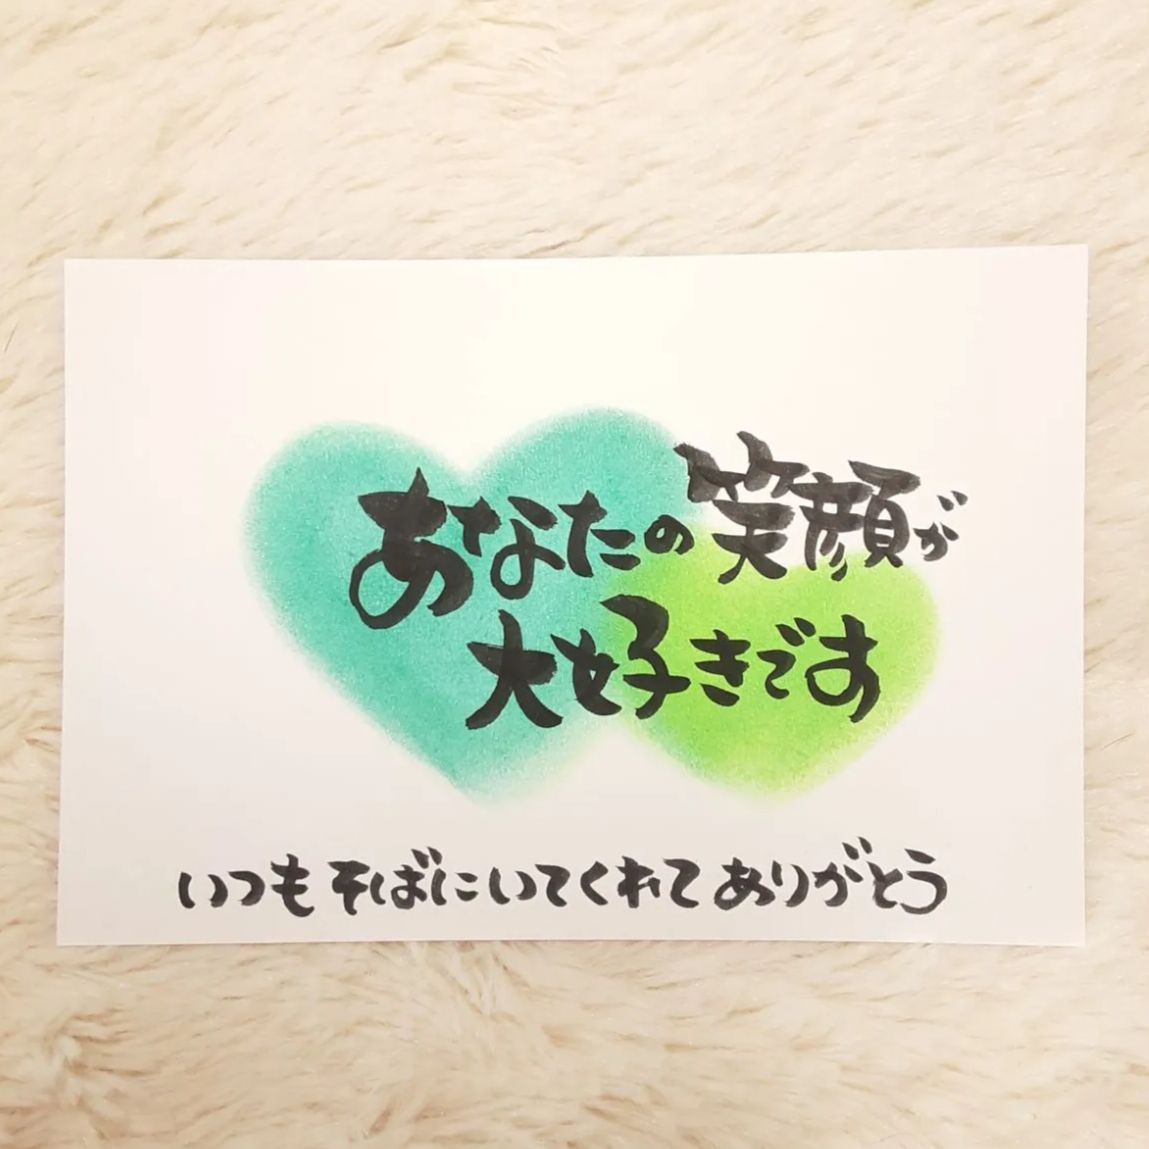 あなたの笑顔が
大好きです
いつもそばにいてくれてありがとう